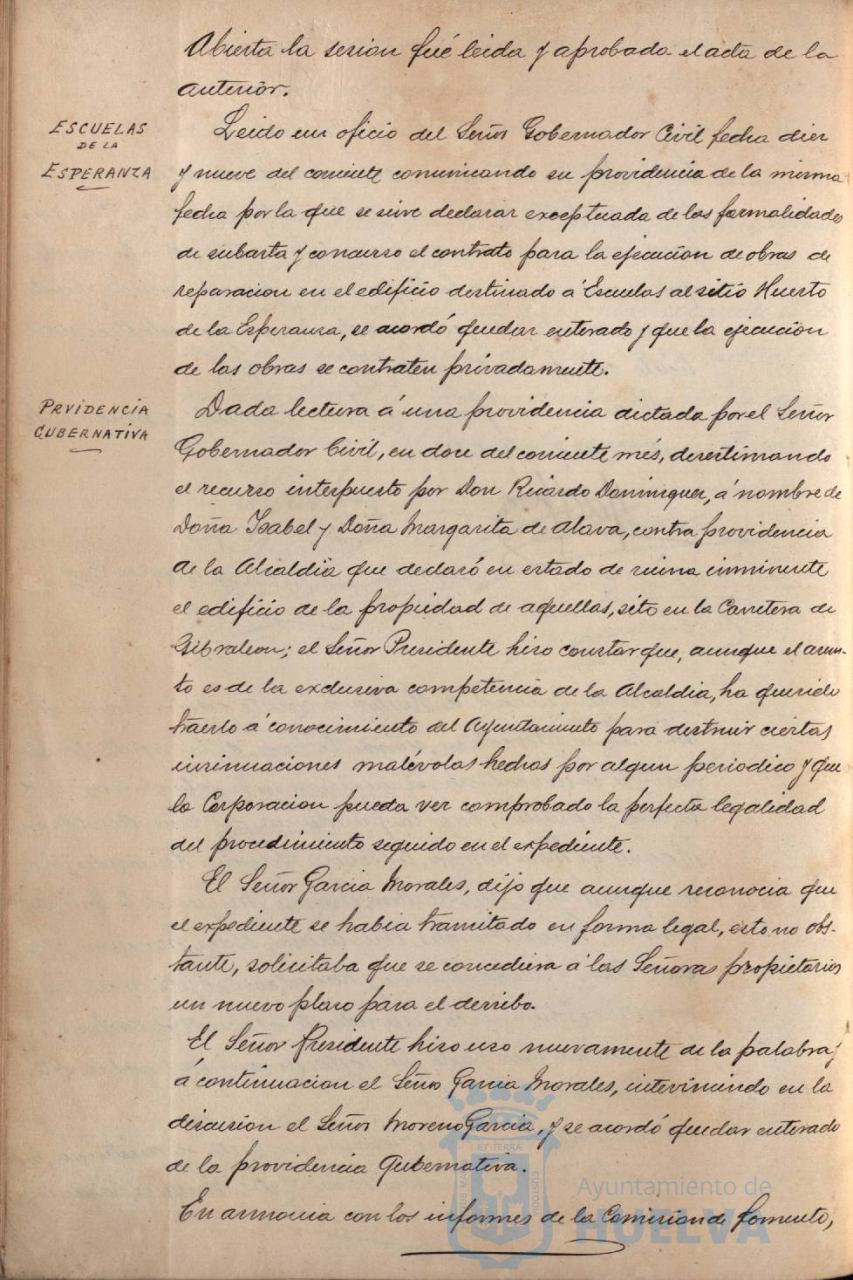 Abierta la sesion fué leida y aprobada el acta de la
anterior.
ESCUELAS
DE LA
ESPERANZA
Leido un oficio del Señor Gobernador Civil fecha diez
y nueve del corriente comunicando su providencia de la misma
fecha por la que se sirve declarar exceptuada de las formalidades
de subasta y concurso el contrato para la ejecucion de obras de
reparacion en el edificio destinado á Escuelas al sitio Huerto
de la Esperanza, se acordó quedar enterado y que la ejecucion
de las obras se contraten privadamente.
PRVIDENCIA
GUBERNATIVA
Dada lectura á una providencia dictada por el Señor
Gobernador Civil, en doce del corriente mes, desestimando
el recurso interpuesto por Don Ricardo Dominguez, á nombre de
Doña Isabel y Doña Margarita de Alava, contra providencia
de la Alcaldia que declaró en estado de ruina inminente
el edificio de la propiedad de aquellas, sito en la Carretera de
Gibraleon; el Señor Presidente hizo constar que, aunque el asun-
to es de la exclusiva competencia de la Alcaldia, ha querido
traerlo á conocimiento del Ayuntamiento para destruir ciertas
insinuaciones malévolas hechas por algun periodico y que
la Corporacion pueda ver comprobado la perfecta legalidad
del procedimiento seguido en el expediente.
El Señor Garcia Morales, dijo que aunque reconocia que
el expediente se habia tramitado en forma legal, esto no obs-
tante, solicitaba que se concediera á las Señoras propietarias
un nuevo plazo para el derribo.
El Señor Presidente hizo uso nuevamente de la palabra y
á continuacion el Señor Garcia Morales, interviniendo en la
discusion el Señor Moreno Garcia, y se acordó quedar enterado
de la providencia Gubernativa.
En armonia con los informes de la Comision de Fomento,
Ayuntamiento de
HUELVA